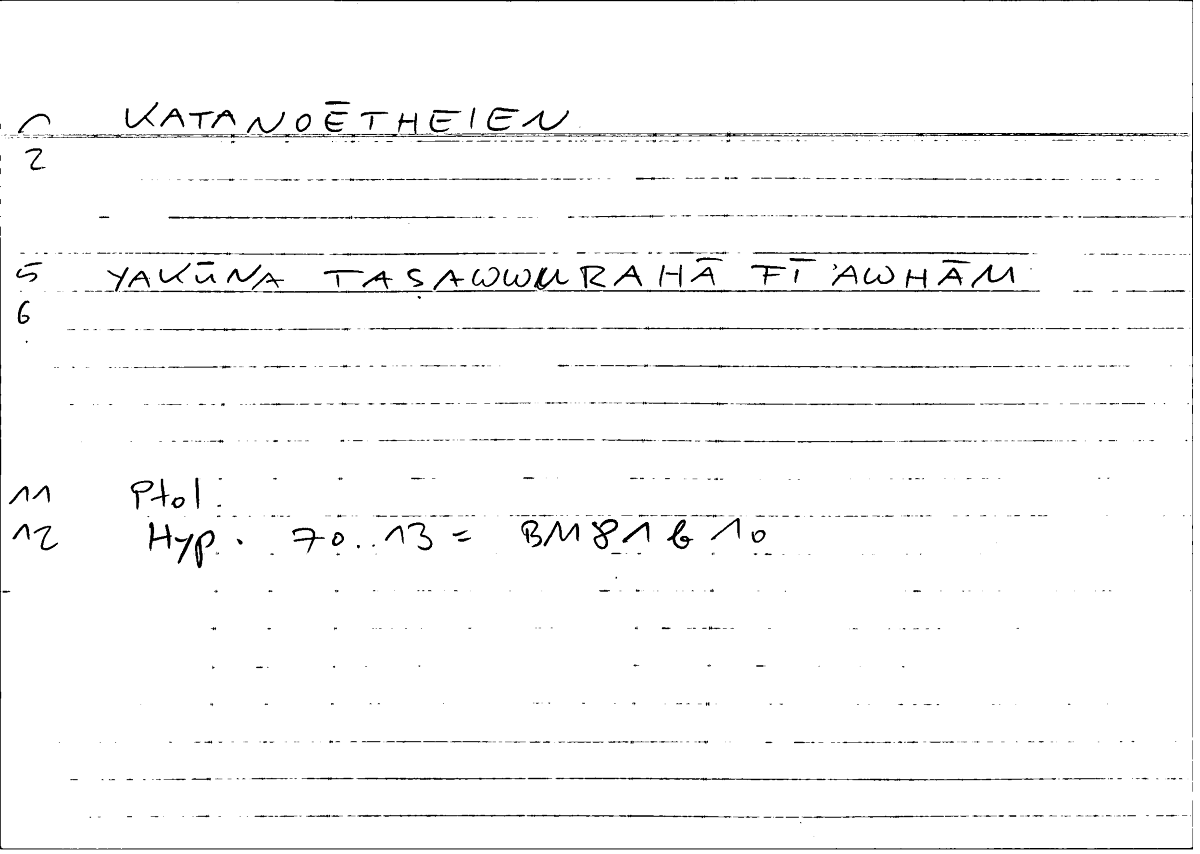 KATANOĒTHEIEN
2
5 YAKŪNA TAṢAWWURAHĀ FĪ ʾAWHĀM
6
11 Ptol.
12 Hyp. 70..13 = BM 81 b 10